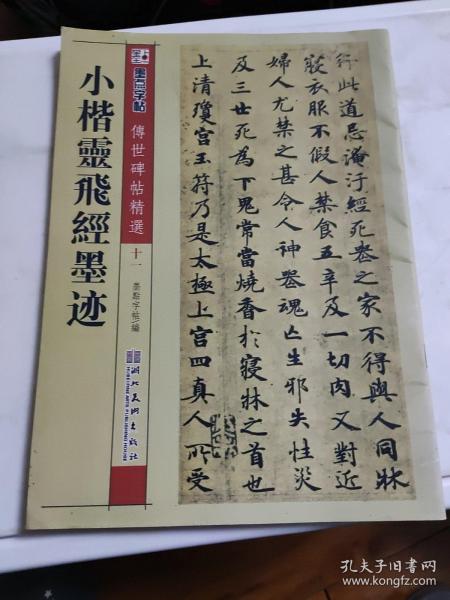 行此道忌淹汙經死喪之家不得與人同牀
寢衣服不假人禁食五辛及一切肉又對近
婦人尤禁之甚令人神喪魂亡生邪失性災
及三世死為下鬼常當燒香於寢牀之首也
上清瓊宮玉符乃是太極上宮四真人所受
墨点字帖
傳世碑帖精選
十一
墨點字帖/編
湖北美術出版社
HUBEI FINE ARTS PUBLISHING HOUSE
小楷靈飛經墨迹
孔夫子旧书网
www.kongfz.com